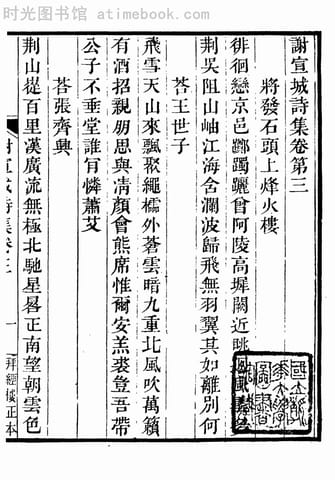 时光图书馆 - atimebook.com
謝宣城詩集卷第三
將發石頭上烽火樓
徘徊戀京邑躑躅躧曾阿陵高墀闕近眺迥風雲多
荆吳阻山岫江海含瀾波歸飛無羽翼其如離別何
荅王世子
飛雪天山來飄聚繩櫺外蒼雲暗九重北風吹萬籟
有酒招親朋思與清顔會熊席惟爾安羔裘豈吾帶
公子不垂堂誰肯憐蕭艾
荅張齊興
荆山從百里漢廣流無極北馳星晷正南望朝雲色
謝宣城詩集卷三
一
拜經樓正本